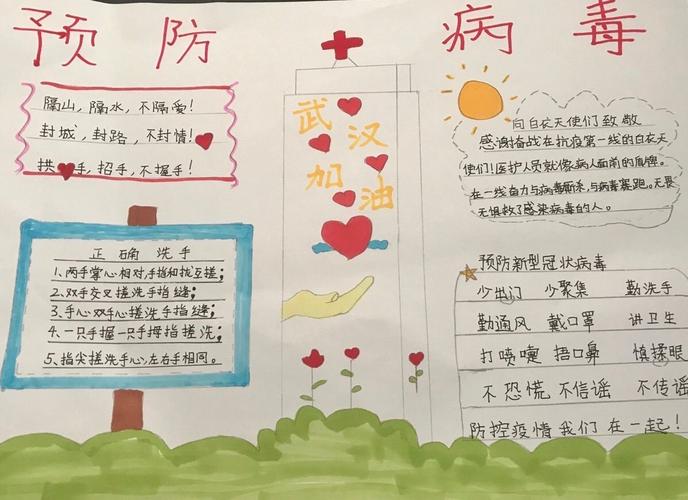 预防病毒
隔山，隔水，不隔爱！
封城，封路，不封情！
拱手，招手，不握手！
武汉
加油
向白衣天使们致敬
感谢奋战在抗疫第一线的白衣天
使们！医护人员就像病人面前的盾牌。
在一线奋力与病毒厮杀，与病毒赛跑。无畏
无惧救了感染病毒的人。
正确洗手
1、两手掌心相对，手指和拢互搓；
2、双手交叉搓洗手指缝；
3、手心双手心搓洗手指缝；
4、一只手握一只手拇指搓洗；
5、指尖搓洗手心，左右手相同。
预防新型冠状病毒
少出门 少聚集 勤洗手
勤通风 戴口罩 讲卫生
打喷嚏 捂口鼻 慎揉眼
不恐慌 不信谣 不传谣
防控疫情我们在一起！